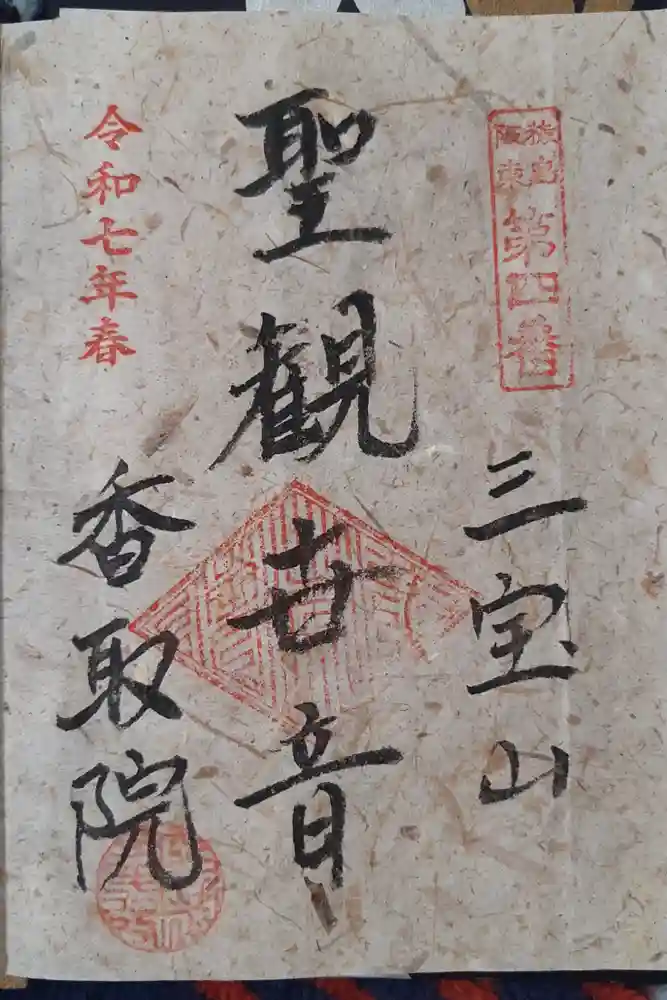 猿島
阪東
第四番
三宝山
聖観世音
令和七年春
香取院